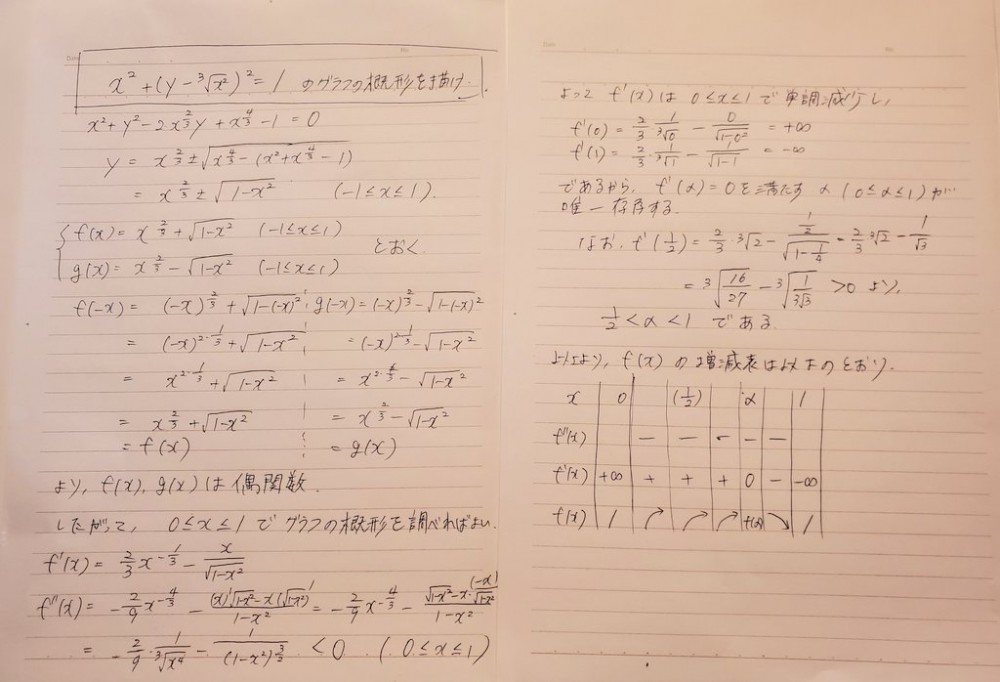 x² + (y - ³√x²)² = 1 のグラフの概形を描け.
x² + y² - 2·x^{2/3}y + x^{4/3} - 1 = 0
y = x^{2/3} ± √(x^{4/3} - (x² + x^{4/3} - 1))
= x^{2/3} ± √(1-x²) (-1≦x≦1).
{ f(x) = x^{2/3} + √(1-x²) (-1≦x≦1)
g(x) = x^{2/3} - √(1-x²) (-1≦x≦1) とおく.
f(-x) = (-x)^{2/3} + √(1-(-x)²) g(-x) = (-x)^{2/3} - √(1-(-x)²)
= (-x)^{2·1/3} + √(1-x²) = (-x)^{2·1/3} - √(1-x²)
= x^{2·1/3} + √(1-x²) = x^{2·1/3} - √(1-x²)
= x^{2/3} + √(1-x²) = x^{2/3} - √(1-x²)
= f(x) = g(x)
より, f(x), g(x) は偶関数.
したがって, 0≦x≦1 でグラフの概形を調べればよい.
f'(x) = 2/3 x^{-1/3} - x/√(1-x²)
f''(x) = -2/9 x^{-4/3} - ((x)'√(1-x²) - x(√(1-x²))')/(1-x²) = -2/9 x^{-4/3} - (√(1-x²) - x·(-x)/√(1-x²))/(1-x²)
= -2/9 · 1/³√x⁴ - 1/(1-x²)^{3/2} < 0 (0≦x≦1)
よって f'(x) は 0≦x≦1 で単調減少し,
f'(0) = 2/3 · 1/³√0 - 0/√(1-0²) = +∞
f'(1) = 2/3 · 1/³√1 - 1/√(1-1) = -∞
であるから, f'(α) = 0 を満たす α (0≦α≦1) が
唯一存在する.
なお, f'(1/2) = 2/3 · ³√2 - (1/2)/√(1-1/4) = 2/3 ³√2 - 1/√3
= ³√(16/27) - ³√(1/(3√3)) > 0 より,
1/2 < α < 1 である.
以上より, f(x) の増減表は以下のとおり.
x 0 (1/2) α 1
f''(x) - - - - -
f'(x) +∞ + + + 0 - -∞
f(x) 1 ↗ ↗ ↗ f(α) ↘ 1